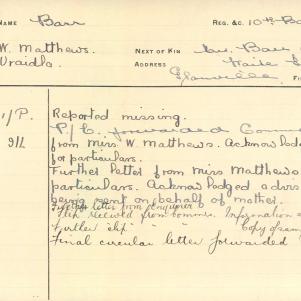 NAME Barr REG. &C. 10th Ba
W. Matthews. NEXT OF KIN Mr. Barr
Uraidla. ADDRESS Waite
Glanville
1/P. Reported missing.
P/C. forwarded Comm
9/11 from Miss. W. Matthews. Acknow
for particulars.
Further letter from Miss Matthews
particulars. Acknowledged advis
being sent on behalf of mother.
letter from enquirer
Slip received from commrs. Information
Further slip " " Copy of same
Final circular letter forwarded